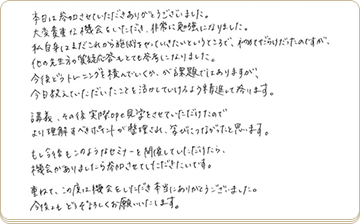 本日は参加させていただきありがとうございました。
大変貴重な機会をいただき、非常に勉強になりました。
私自身はまだこれから施術をやっていきたいというところで、初めてだらけだったのですが、
他の先生方の質疑応答もとても参考になりました。
今後どうトレーニングを積んでいくか、が課題ではありますが、
今日教えていただいたことを活かしていけるよう精進して参ります。
講義、その後実際ope見学をさせていただけたので
より理解すべきポイントが整理され、学びにつながったと思います。
もし今後もこのようなセミナーを開催していただけたら、
機会がありましたら参加させてしただきたいです。
重ねて、この度は機会をいただき本当にありがとうございました。
今後ともどうぞよろしくお願いいたします。